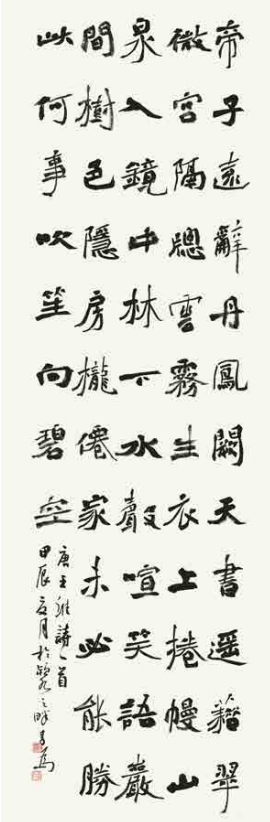 帝子遠辭丹鳳闕天書遥藉翠
微宮隔牕雲霧生衣上捲幔山
泉入鏡中林下水聲喧笑語巖
間樹色隱房櫳僊家未必能勝
此何事吹笙向碧空
唐王維詩一首
甲辰夏月於之畔